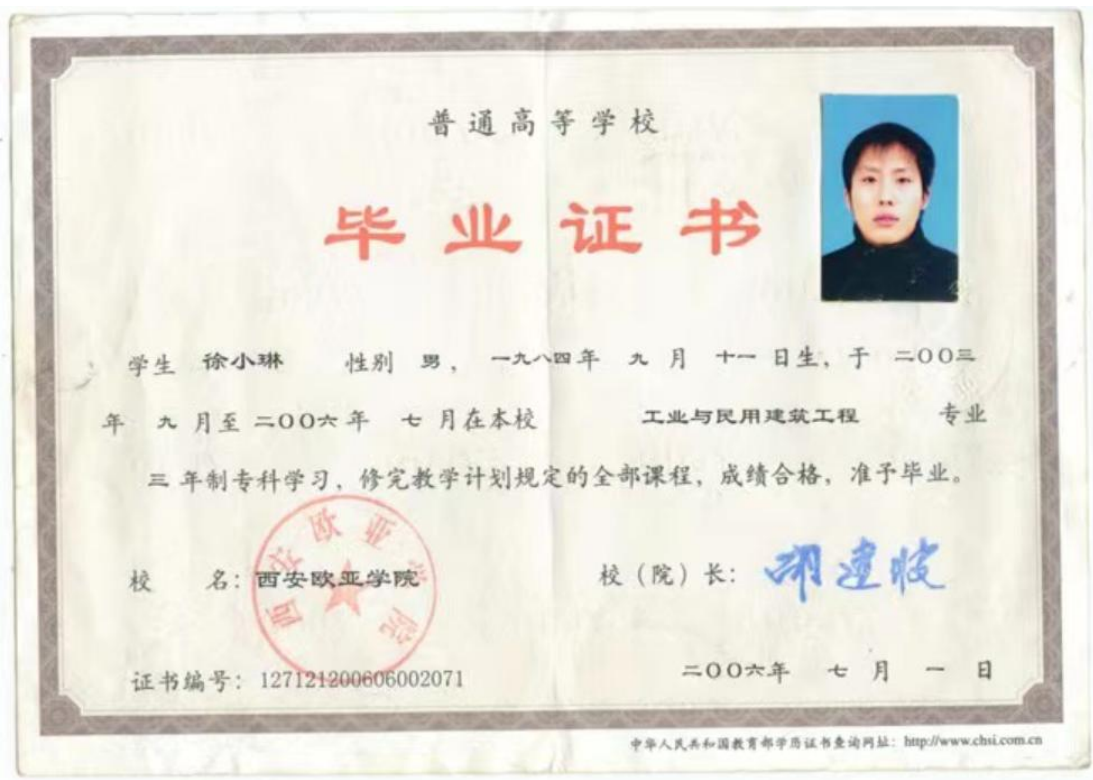 普通高等学校
毕业证书
学生 徐小琳 性别 男, 一九八四年 九 月 十一 日生, 于 二OO三
年 九 月至 二OO六 年 七 月在本校 工业与民用建筑工程 专业
三 年制专科学习, 修完教学计划规定的全部课程, 成绩合格, 准予毕业。
校 名: 西安欧亚学院 校(院)长: 胡建波
西安欧亚学院
证书编号: 127121200606002071 二OO六年 七 月 一 日
中华人民共和国教育部学历证书查询网址: http://www.chsi.com.cn